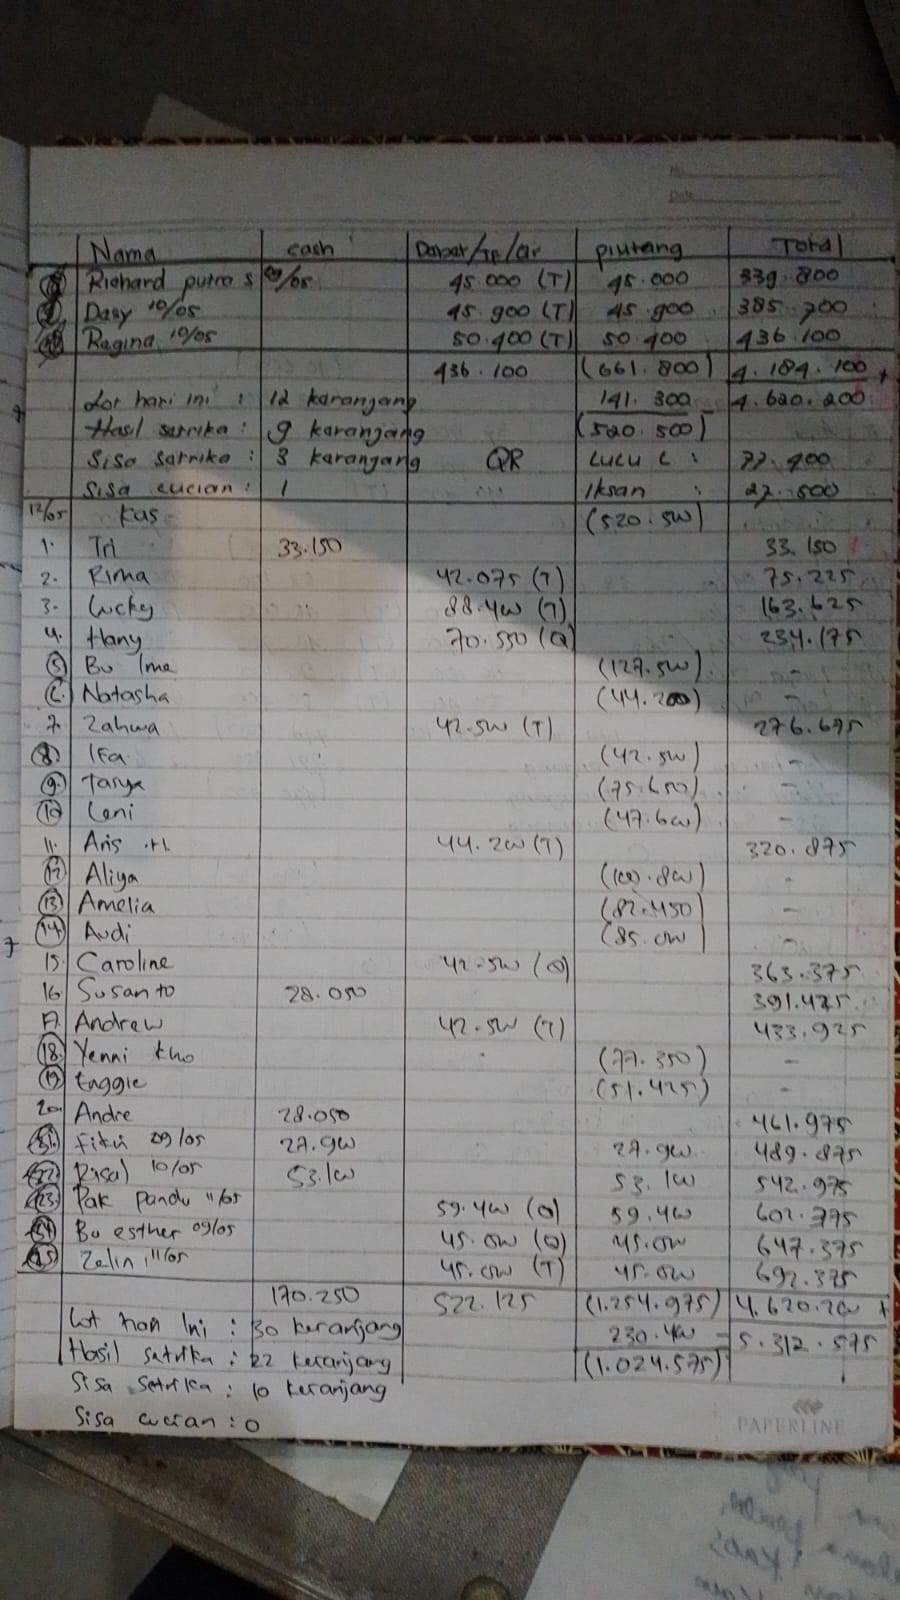 No.
Date
Nama cash Dapat/TF/Qr piutang Total
Richard putro s 09/05 45.000 (T) 45.000 339.800
Dasy 10/05 45.900 (T) 45.900 385.700
Regina 10/05 50.400 (T) 50.400 436.100
436.100 (661.800) 4.184.100 +
Lot hari ini : 12 karanjang 141.300 - 4.620.200
Hasil satrika : 9 karanjang (520.500)
Sisa satrika : 3 karanjang QR LULU C : 77.400
Sisa cucian : 1 Iksan : 27.500
12/05 kas (520.5W)
1. Tri 33.150 33.150
2. Rima 42.075 (T) 75.225
3. Lucky 88.4W (T) 163.625
4. Hany 70.550 (Q) 234.175
5 Bu Ima (127.5W) -
6. Natasha (44.200) -
7. Zahwa 42.5W (T) 276.675
8 Ifa (42.5W) -
9. Tasya (75.650) -
10 Leni (47.6W) -
11. Aris .H 44.2W (T) 320.875
12 Aliya (100.8W) -
13 Amelia (82.450) -
14 Audi (85.0W) -
15. Caroline 42.5W (Q) 363.375
16. Susanto 28.050 391.425
17. Andrew 42.5W (T) 433.925
18. Yenni kho (77.350) -
19 Enggie (51.425) -
20. Andre 28.050 461.975
21. Fitri 09/05 27.9W 27.9W 489.875
22 Risal 10/05 53.1W 53.1W 542.975
23 Pak pandu 11/05 59.4W (Q) 59.4W 602.375
24 Bu esther 09/05 45.0W (Q) 45.0W 647.375
25 Zelin 11/05 45.0W (T) 45.0W 692.375
170.250 522.125 (1.254.975) 4.620.2W +
Lot hari Ini : 30 keranjang 230.4W - 5.312.575
Hasil setrika : 22 keranjang (1.024.575)
Sisa setrika : 10 keranjang
Sisa cucian : 0
PAPERLINE